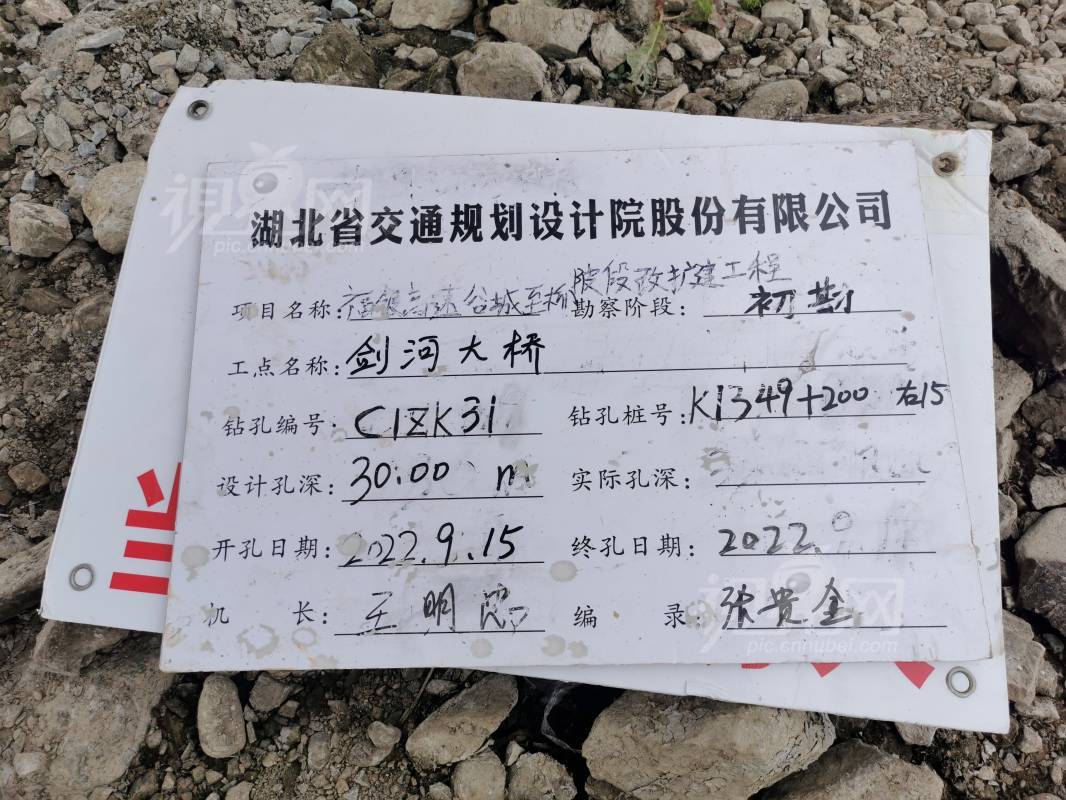 視界网
pic.cnhubei.com
湖北省交通规划设计院股份有限公司
项目名称:福银高速谷城至 陂段改扩建工程 勘察阶段: 初勘
工点名称:剑河大桥
钻孔编号: CIZK31 钻孔桩号:K1349+200 右15
设计孔深: 30.00 m 实际孔深:
开孔日期: 2022.9.15 终孔日期: 2022.
机 长: 王明 编 录: 张贵全
視界网
pic.cnhubei.com